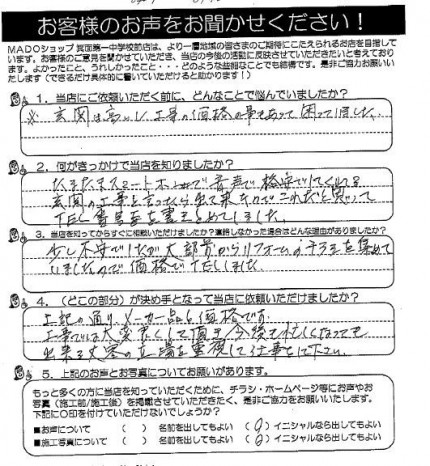 お客様のお声をお聞かせください！
MADOショップ 箕面第一中学校前店は、より一層地域の皆さまのご期待にこたえられるお店を目指して
います。お客様のご意見を聞かせていただき、当店の今後の活動に反映させていただきたいと考えており
ます。よかったこと、うれしかったこと・・・どのような些細なことでも結構です。是非ご協力お願いいた
します（できるだけ具体的に書いていただけると助かります！）
1．当店にご依頼いただく前に、どんなことで悩んでいましたか？
※ 玄関は高いし工事の価格の事もあって困っていました
2．何がきっかけで当店を知りましたか？
たまたまスマートホンで音声で格安でしてくれる
玄関の工事と言ったら出て来たのでこれだと思って
TEL番号を書き留めてしました。
3．当店を知ってからすぐに相談いただけましたか？躊躇しなかった場合はどんな理由がありましたか？
少し不安でしたが大部前からリフォームのチラシを集めて
いましたので価格でTELしました
4．（どこの部分）が決め手となって当店に依頼いただけましたか？
上記の通りメーカー品と価格です。
工事では大変良くして頂き今後も忙しくなっても
出来る丈客の立場を重視して仕事をして下さい。
5．上記のお声とお写真についてお願いがあります。
もっと多くの方に当店を知っていただくために、チラシ・ホームページ等にお声やお
写真（施工前/施工後）を掲載させていただきたく、是非ご協力をお願いいたします。
下記に〇印を付けていただけないでしょうか？
■お声について （ ） 名前を出してもよい （〇）イニシャルなら出してもよい
■施工写真について （ ） 名前を出してもよい （〇）イニシャルなら出してもよい